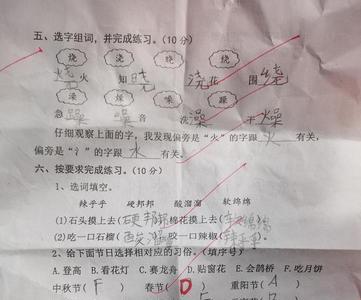 五、选字组词，并完成练习。(10分)
烧 浇 晓 绕
烧火 知晓 浇花 围绕
澡 燥 噪 躁
急躁 噪音 洗澡 干燥
仔细观察上面的字，我发现偏旁是“火”的字跟 火 有关，
偏旁是“氵”的字跟 水 有关。
六、按要求完成练习。(10分)
1、选词填空。
辣乎乎 硬邦邦 酸溜溜 软绵绵
(1)石头摸上去(硬邦邦)棉花摸上去(软绵绵
(2)吃一口石榴(酸溜溜)咬一口辣椒(辣乎乎
2、给下面节日选择相对应的习俗。(填序号)
A.登高 B.看花灯 C.赛龙舟 D.贴窗花 E.会鹊桥 F.吃月饼
中秋节( F ) 春节( D ) 重阳节( A )